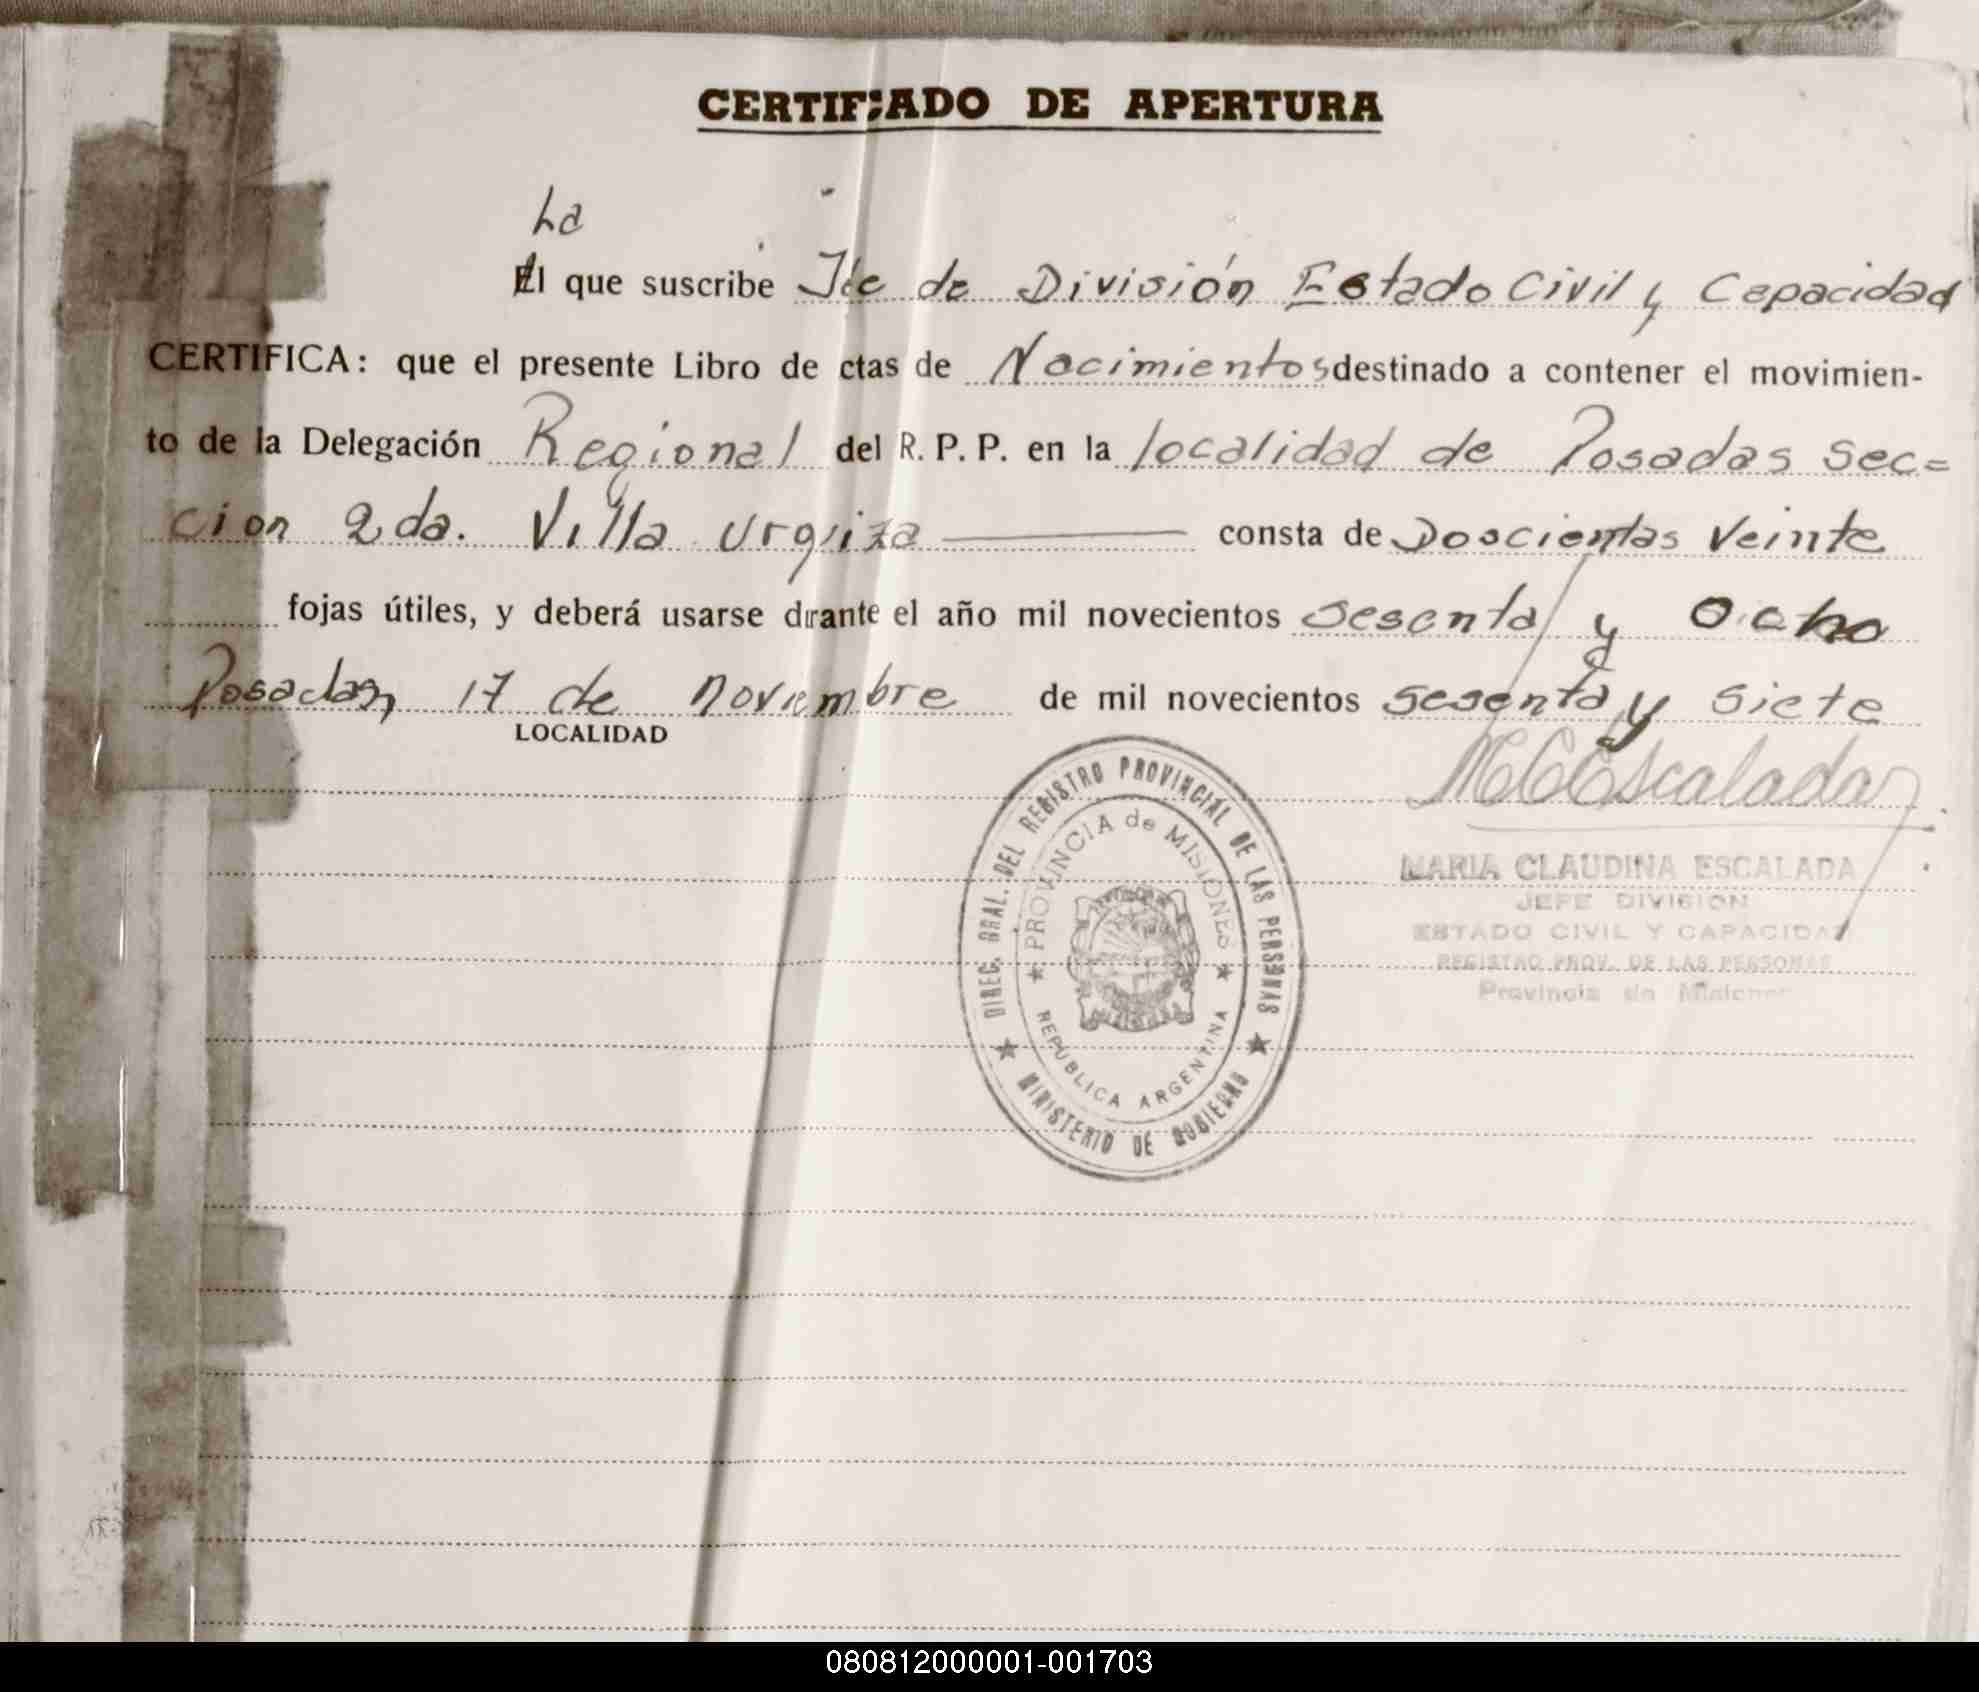 CERTIFICADO DE APERTURA
La
El que suscribe Jefe de División Estado Civil y Capacidad
CERTIFICA: que el presente Libro de ctas de Nacimientos destinado a contener el movimien-
to de la Delegación Regional del R. P. P. en la localidad de Posadas Sec=
cion 2da. Villa Urquiza consta de Doscientas Veinte
fojas útiles, y deberá usarse drante el año mil novecientos sesenta y Ocho
Posadas, 17 de noviembre de mil novecientos sesenta y siete
LOCALIDAD
MCEscalada
MARIA CLAUDINA ESCALADA
JEFE DIVISION
ESTADO CIVIL Y CAPACIDAD
REGISTRO PROV. DE LAS PERSONAS
Provincia de Misiones
DIREC. GRAL. DEL REGISTRO PROVINCIAL DE LAS PERSONAS
MINISTERIO DE GOBIERNO
PROVINCIA de MISIONES
REPUBLICA ARGENTINA
080812000001-001703